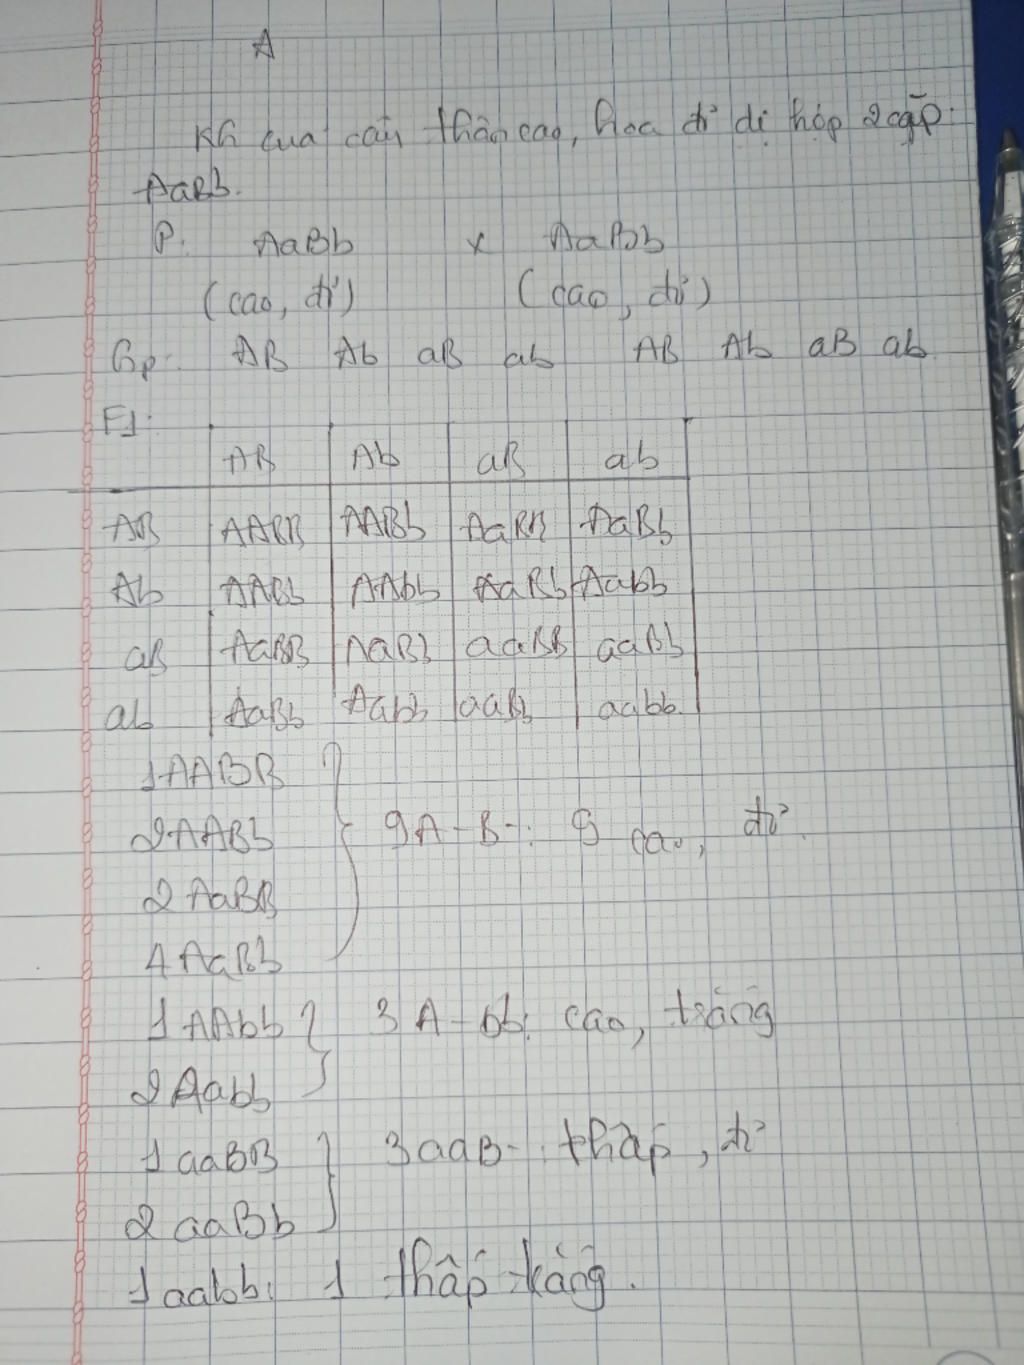 A
KG của cây thân cao, hoa đỏ dị hợp 2 cặp:
AaBb.
P: AaBb x AaBb
(cao, đỏ) (cao, đỏ)
Gp: AB Ab aB ab AB Ab aB ab
F1:
AB Ab aB ab
AB AABB AABb AaBB AaBb
Ab AABb AAbb AaBb Aabb
aB AaBB AaBb aaBB aaBb
ab AaBb Aabb aaBb aabb
1AABB
2AABb 9A-B-: 9 cao, đỏ.
2AaBB
4AaBb
1AAbb 3A-bb: cao, trắng
2Aabb
1aaBB 3aaB-: thấp, đỏ
2aaBb
1aabb: 1 thấp trắng.